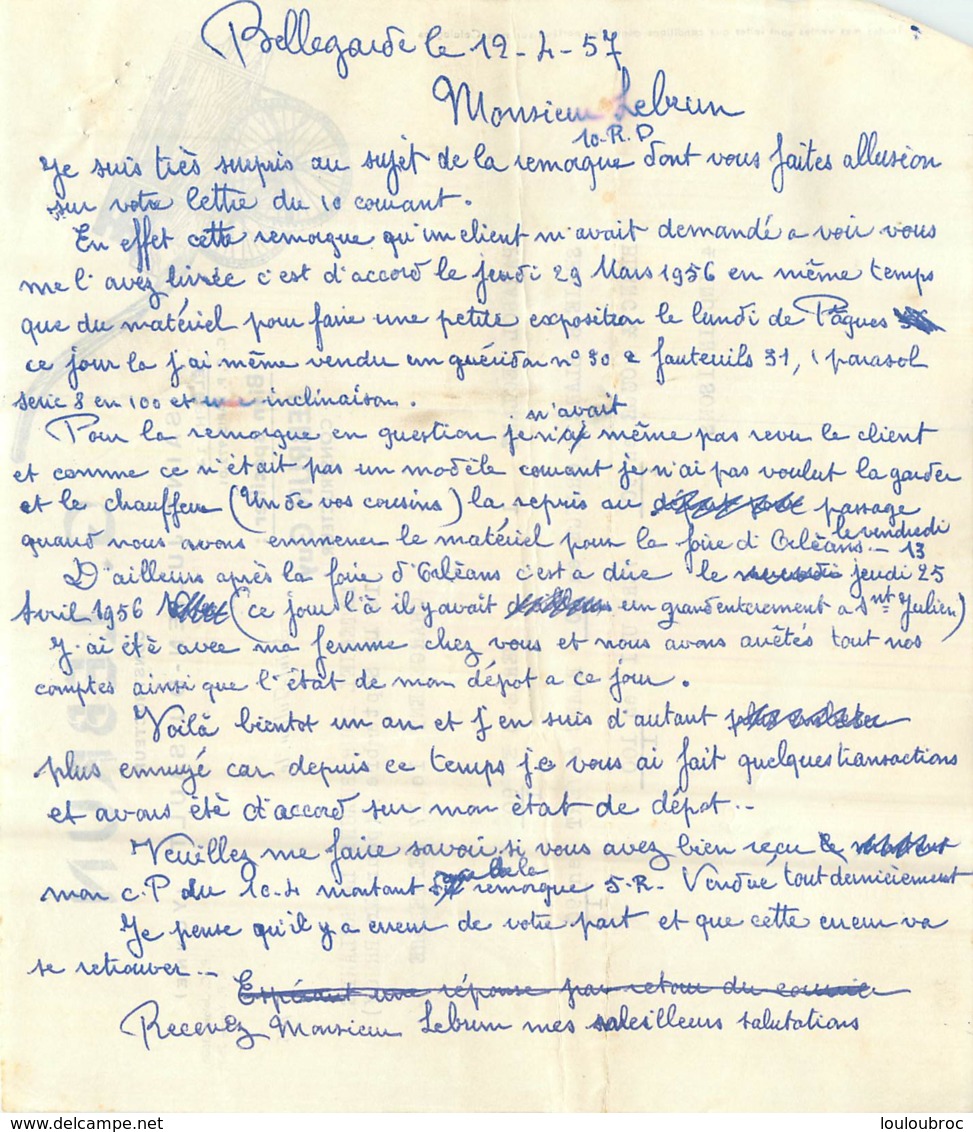 Bellegarde le 12-4-57
Monsieur Lebrun
10.R.D
Je suis très surpis au sujet de la remorque dont vous faites allusion
sur votre lettre du 10 courant.
En effet cette remorque qu'un client m'avait demandé a voir vous
me l'avez livrée c'est d'accord le jeudi 29 Mars 1956 en même temps
que du matériel pour faire une petite exposition le lundi de Pâques
ce jour la j'ai même vendu un guéridon n° 30 2 fauteuils 31, 1 parasol
serie 8 en 100 et inclinaison.
n'avait
Pour la remorque en question je même pas revu le client
et comme ce n'était pas un modèle courant je n'ai pas voulut la garder
et le chauffeur (Un de vos cousins) la repris au passage
quand nous avons emmener le matériel pour la foire d'Orléans - le vendredi 13
D'ailleurs après la foire d'Orléans c'est a dire le jeudi 25
Avril 1956 (ce jour l'à il y avait un grand enterement a St Julien)
J'ai été avec ma femme chez vous et nous avons arrêtés tout nos
comptes ainsi que l'état de mon dépot a ce jour.
Voilà bientot un an et j'en suis d'autant
plus ennuyé car depuis ce temps je vous ai fait quelques transactions
et avons été d'accord sur mon état de dépot..
Veuillez me faire savoir si vous avez bien reçu
mon c.P du 10.4 montant de la remorque 5.R. Vendue tout dernièrement
Je pense qu'il y a erreur de votre part et que cette erreur va
se retrouver..
Espérant une réponse par retour du courrier
Recevez Monsieur Lebrun mes meilleurs salutations
LEBRUN
louloubroc